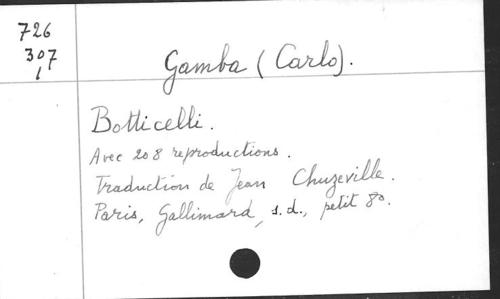 726
307
1
Gamba (Carlo).
Botticelli.
Avec 208 reproductions.
Traduction de Jean Chuzeville.
Paris, Gallimard, s.d., petit 8o.